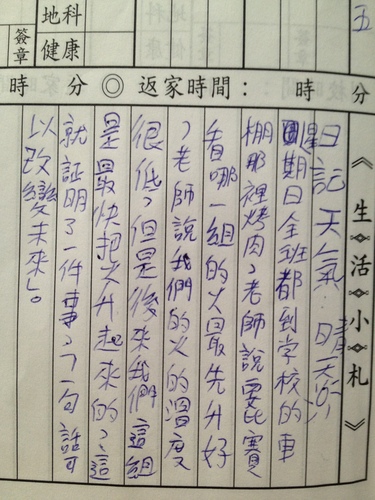 五
地科
簽章
健康
時 分 ◎ 返家時間： 時 分
《生活小札》
日記 天氣：晴天
星期日全班都到学校的車
棚那裡烤肉，老師說要比賽
看哪一組的火最先升好
，老師說我們的火的溫度
很低，但是後來我們這組
是最快把火升起來的，這
就証明了一件事，「一句話可
以改變未來」。